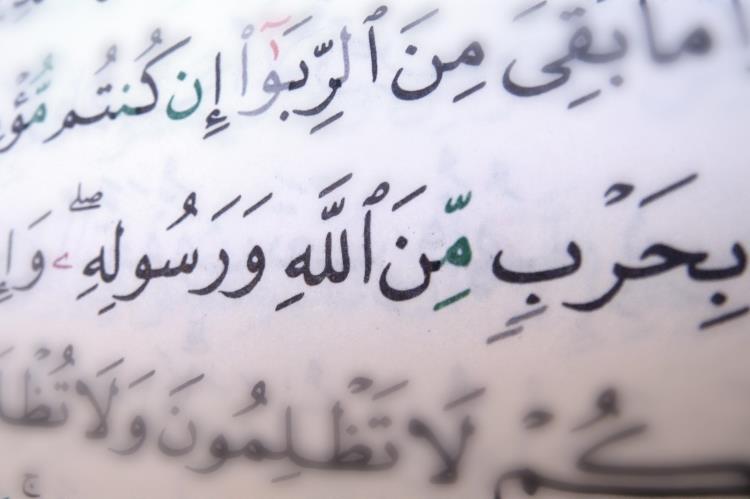 مَا بَقِىَ مِنَ ٱلرِّبَوٰٓا۟ إِن كُنتُم
بِحَرْبٍۢ مِّنَ ٱللَّهِ وَرَسُولِهِۦ ۖ
كُمْ لَا تَظْلِمُونَ وَلَا